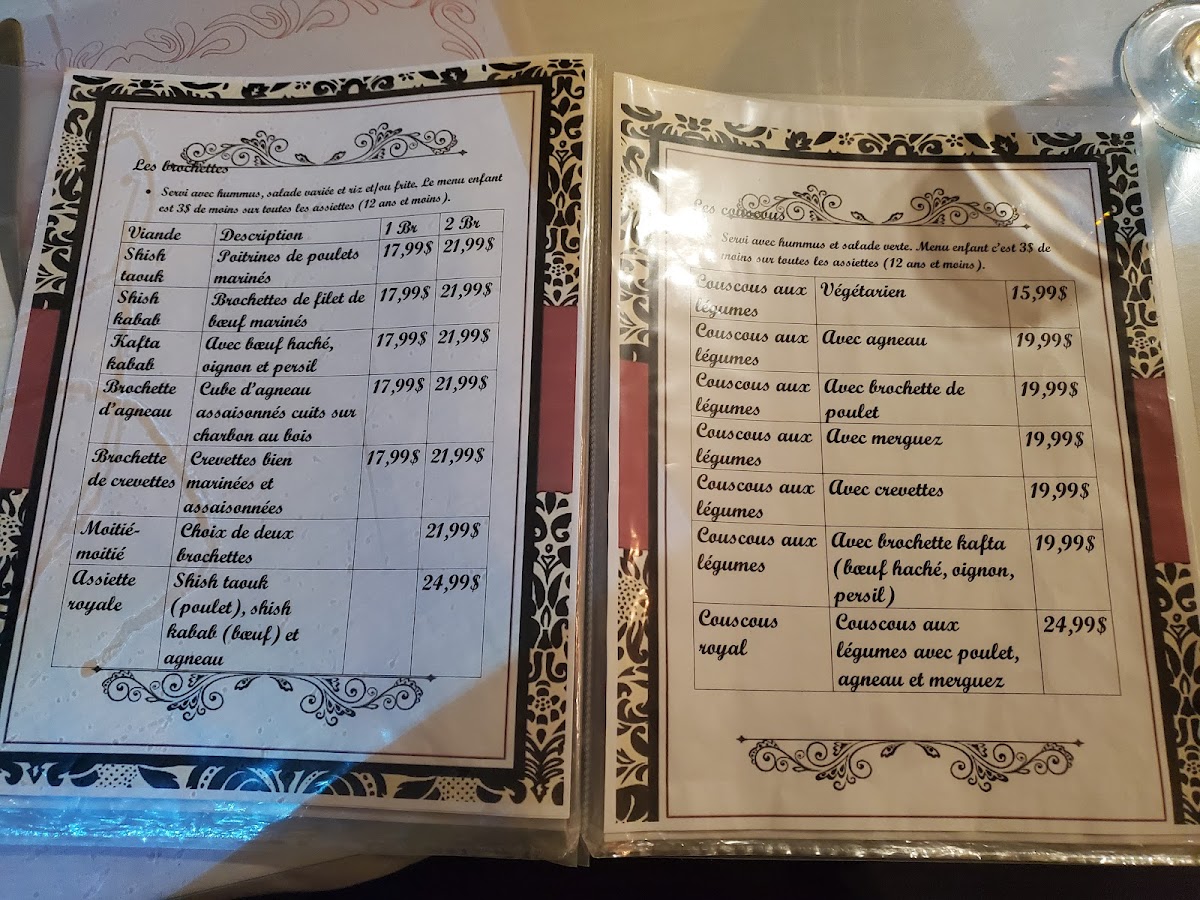 Les brochettes
• Servi avec hummus, salade variée et riz et/ou frite. Le menu enfant
est 3$ de moins sur toutes les assiettes (12 ans et moins).
Viande Description 1 Br 2 Br
Shish Poitrines de poulets 17,99$ 21,99$
taouk marinés
Shish Brochettes de filet de 17,99$ 21,99$
kabab bœuf marinés
Kafta Avec bœuf haché, 17,99$ 21,99$
kabab oignon et persil
Brochette Cube d'agneau 17,99$ 21,99$
d'agneau assaisonnés cuits sur
charbon au bois
Brochette Crevettes bien 17,99$ 21,99$
de crevettes marinées et
assaisonnées
Moitié- Choix de deux 21,99$
moitié brochettes
Assiette Shish taouk 24,99$
royale (poulet), shish
kabab (bœuf) et
agneau
Les couscous
Servi avec hummus et salade verte. Menu enfant c'est 3$ de
moins sur toutes les assiettes (12 ans et moins).
Couscous aux Végétarien 15,99$
légumes
Couscous aux Avec agneau 19,99$
légumes
Couscous aux Avec brochette de 19,99$
légumes poulet
Couscous aux Avec merguez 19,99$
légumes
Couscous aux Avec crevettes 19,99$
légumes
Couscous aux Avec brochette kafta 19,99$
légumes (bœuf haché, oignon,
persil)
Couscous Couscous aux 24,99$
royal légumes avec poulet,
agneau et merguez